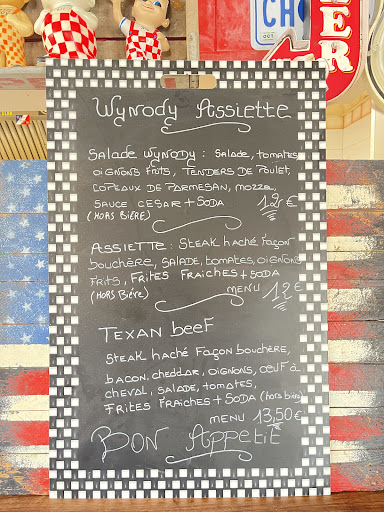 CH
ER
Wynody Assiette
Salade Wynody : salade, tomates
oignons frits, tenders de poulet,
copeaux de parmesan, mozza,
sauce cesar + soda
(hors bière) 12€
Assiette : steak haché façon
bouchère, salade, tomates, oignons
frits, frites fraiches + soda
(hors bière) menu 12€
Texan beef
steak haché façon bouchère,
bacon, cheddar, oignons, œuf à
cheval, salade, tomates,
frites fraiches + soda (hors bière)
menu 13,50€
Bon Appetit